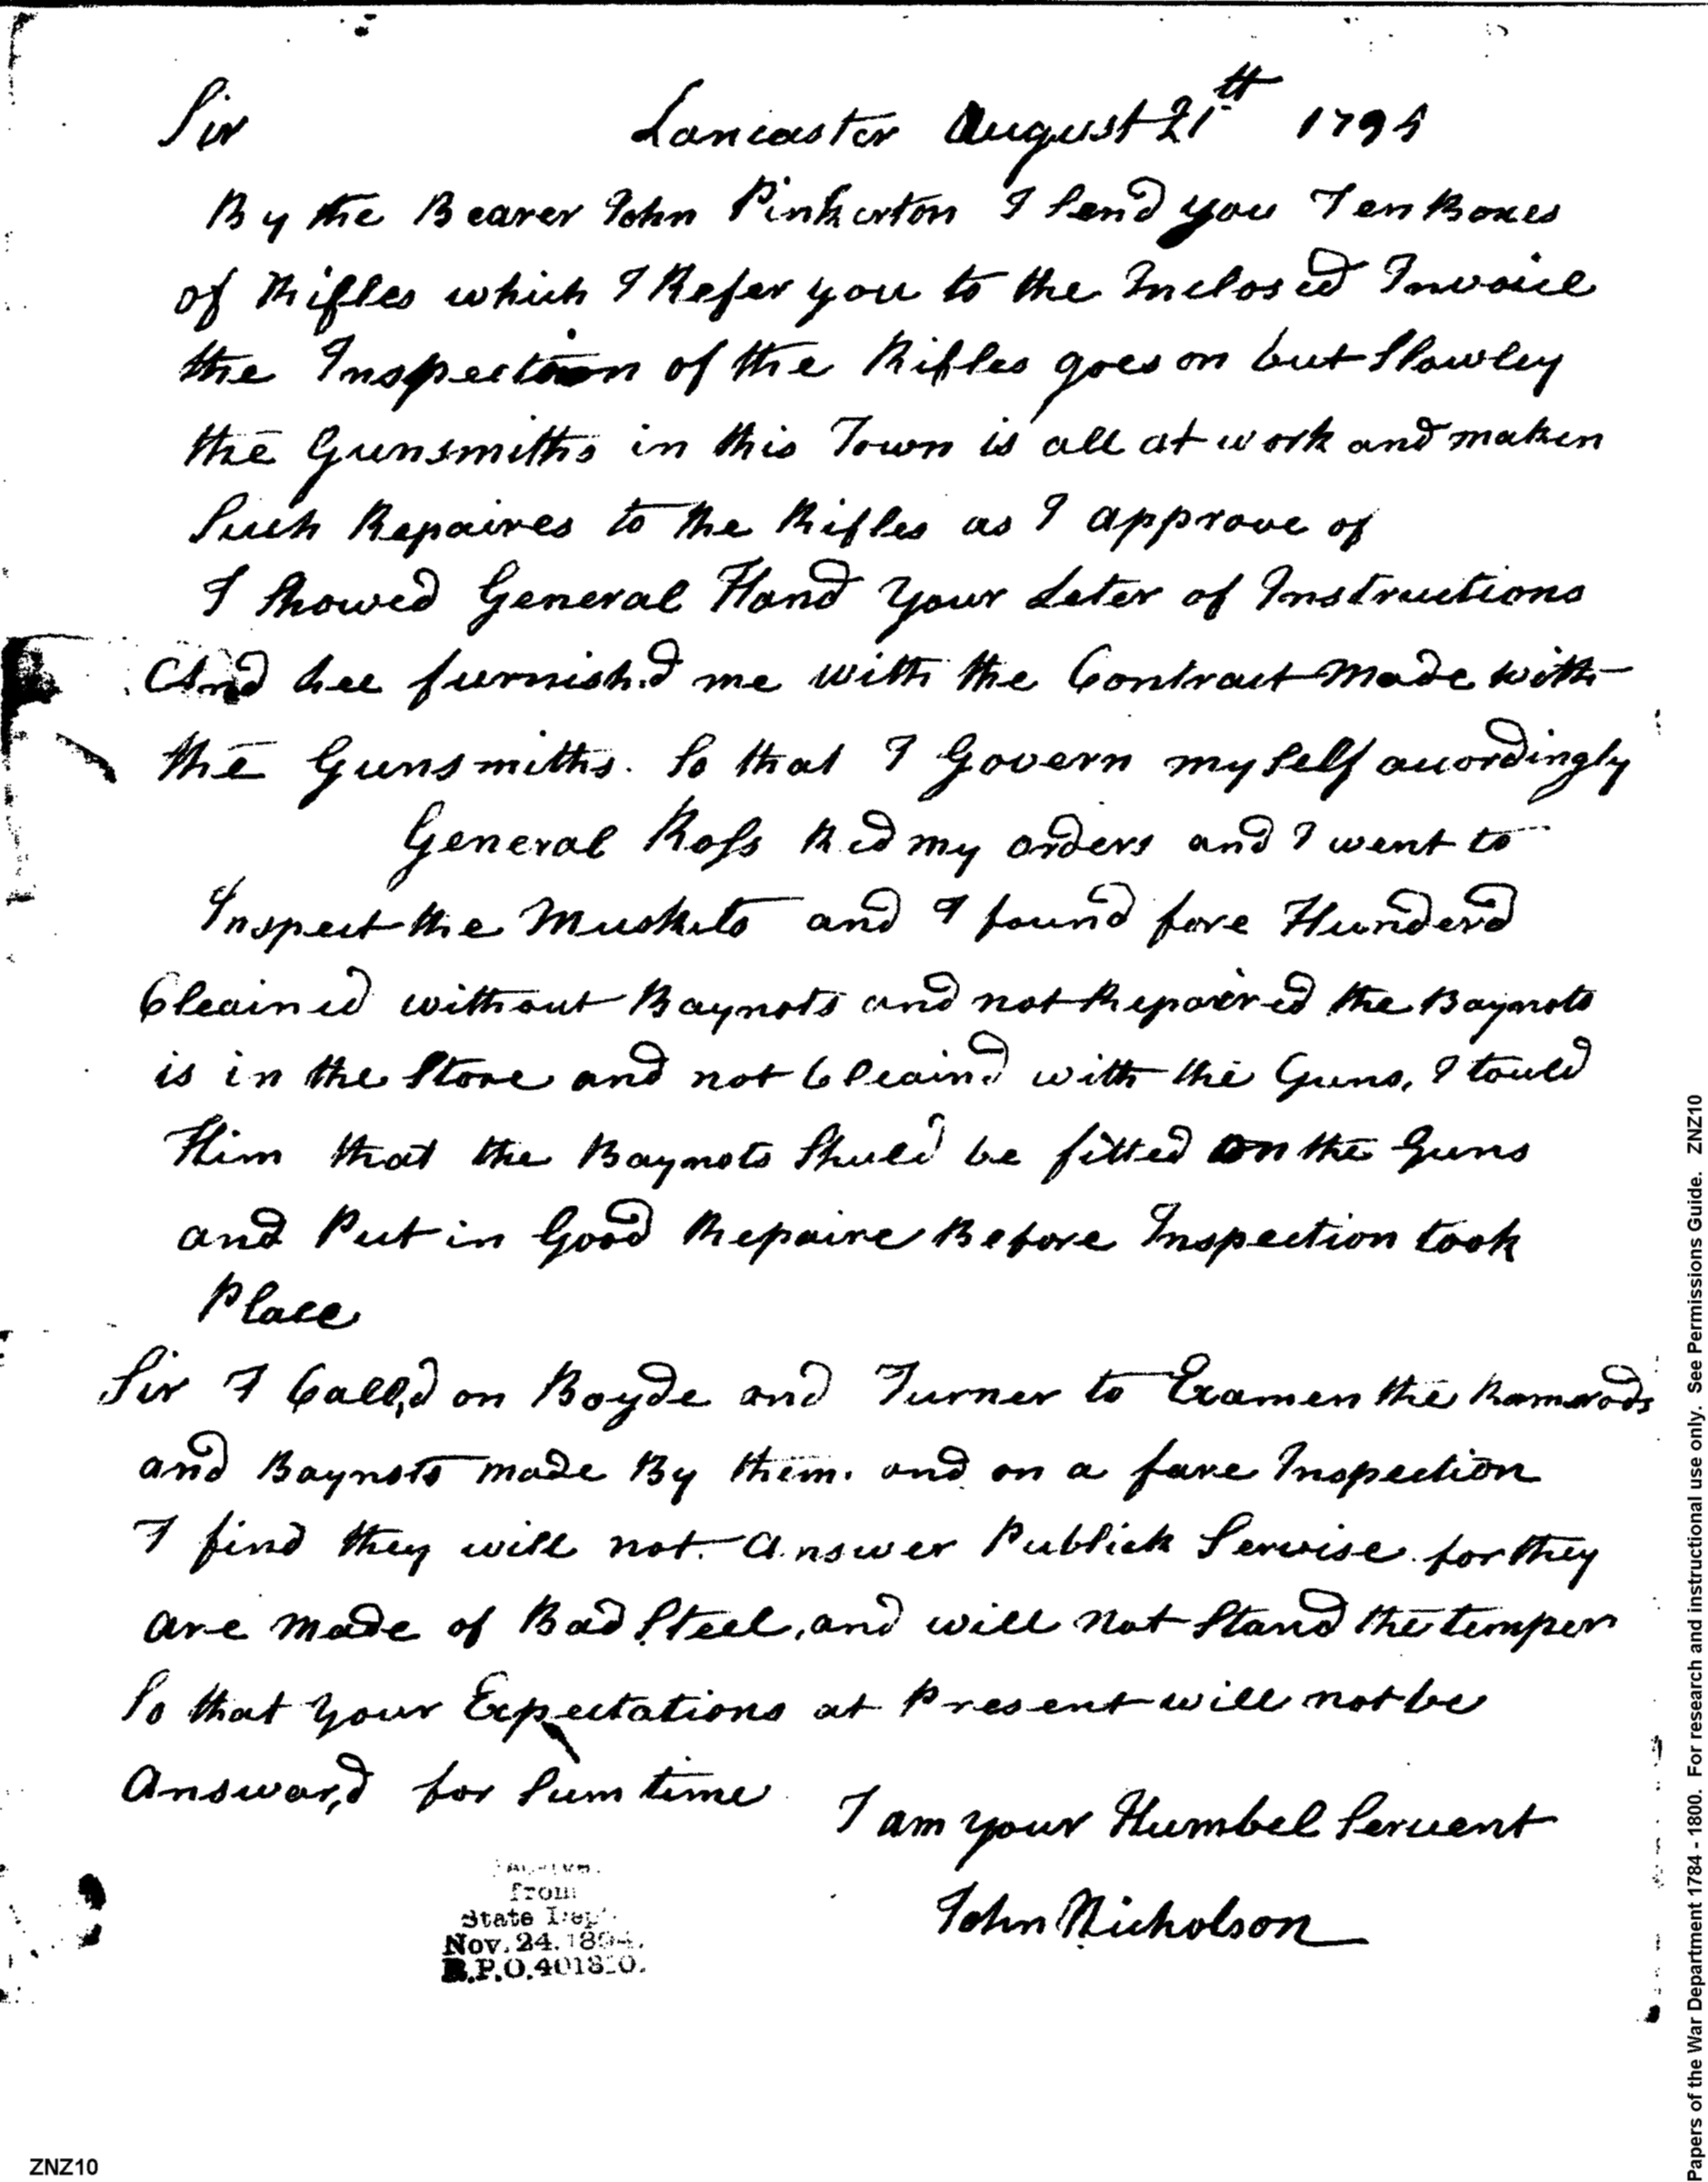 Sir Lancaster August 21th 1795
By the Bearer John Pinkerton I Send you Ten Boxes
of Rifles which I Refer you to the Inclosed Invoice
the Inspection of the Rifles goes on but Slowley
the Gunsmiths in this Town is all at work and maken
Such Repaires to the Rifles as I approve of
I Showed General Hand Your Leter of Instructions
And hee furnish.d me with the Contract Made with
the Gunsmiths. So that I Govern my Self accordingly
General Ross Red my orders and I went to
Inspect the Muskets and I found fore Hunderd
Cleained without Baynots and not Repaired the Baynots
is in the Store and not Cleaind with the Guns, I tould
Him that the Baynots Shuld be fitted on the Guns
and Put in Good Repaire Before Inspection took
Place
Sir I Call,d on Boyde and Turner to Examen the Ramrods
and Baynots made By them. and on a fare Inspection
I find they will not. Answer Publick Servise. for they
are made of Bad Steel, and will Not Stand the temper
So that your Expectations at Present will not be
Answar,d for Sum time
I am your Humbel Servent
John Nicholson
from
State Dep't
Nov. 24. 1894.
R.P.O. 
ZNZ10
Papers of the War Department 1784 - 1800. For research and instructional use only. See Permissions Guide. ZNZ10